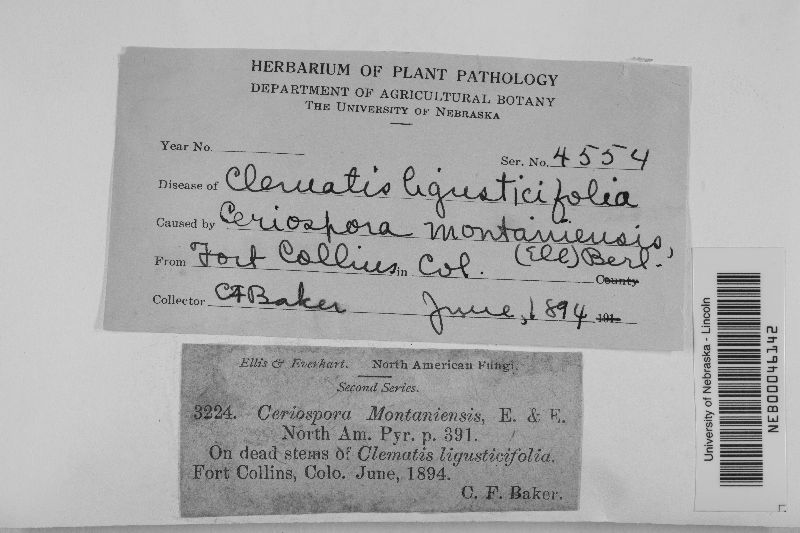 HERBARIUM OF PLANT PATHOLOGY
DEPARTMENT OF AGRICULTURAL BOTANY
THE UNIVERSITY OF NEBRASKA
Year No.
Ser. No. 4554
Disease of Clematis ligusticifolia
Caused by Ceriospora montaniensis,
(Ell) Berl.
From Fort Collins in Col. County
Collector CF Baker June, 1894 191
Ellis & Everhart. North American Fungi.
Second Series.
3224. Ceriospora Montaniensis, E. & E.
North Am. Pyr. p. 391.
On dead stems of Clematis ligusticifolia.
Fort Collins, Colo. June, 1894.
C. F. Baker.
University of Nebraska - Lincoln
NEB00046142